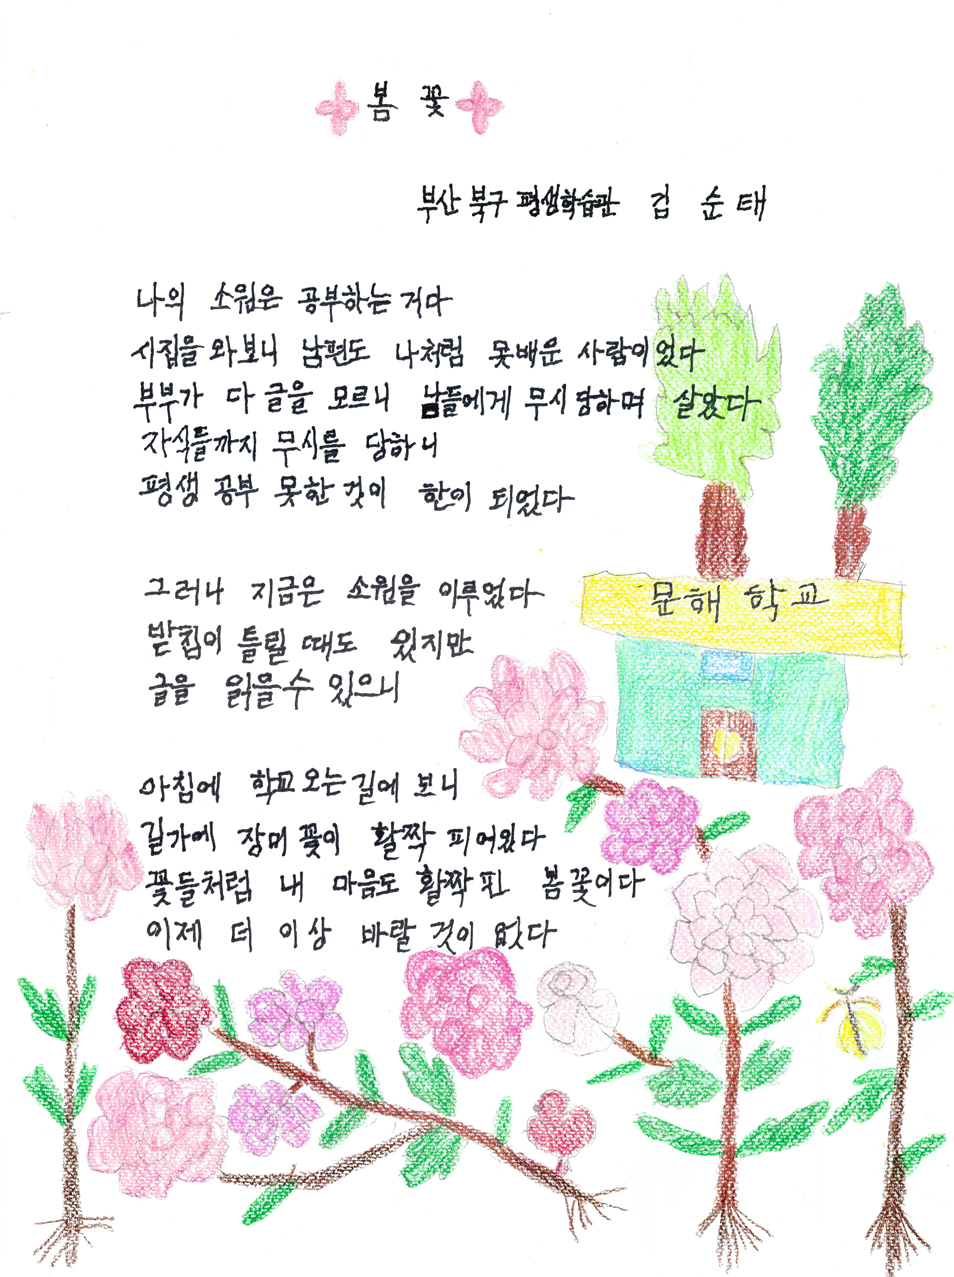 봄 꽃
부산 북구 평생학습관 김 순 태
나의 소원은 공부하는 거다
시집을 와보니 남편도 나처럼 못배운 사람이었다
부부가 다 글을 모르니 남들에게 무시 당하며 살았다
자식들까지 무시를 당하니
평생 공부 못한 것이 한이 되었다
그러나 지금은 소원을 이루었다
받침이 틀릴 때도 있지만
글을 읽을수 있으니
문해 학교
아침에 학교 오는 길에 보니
길가에 장미 꽃이 활짝 피어있다
꽃들처럼 내 마음도 활짝 핀 봄 꽃이다
이제 더 이상 바랄 것이 없다